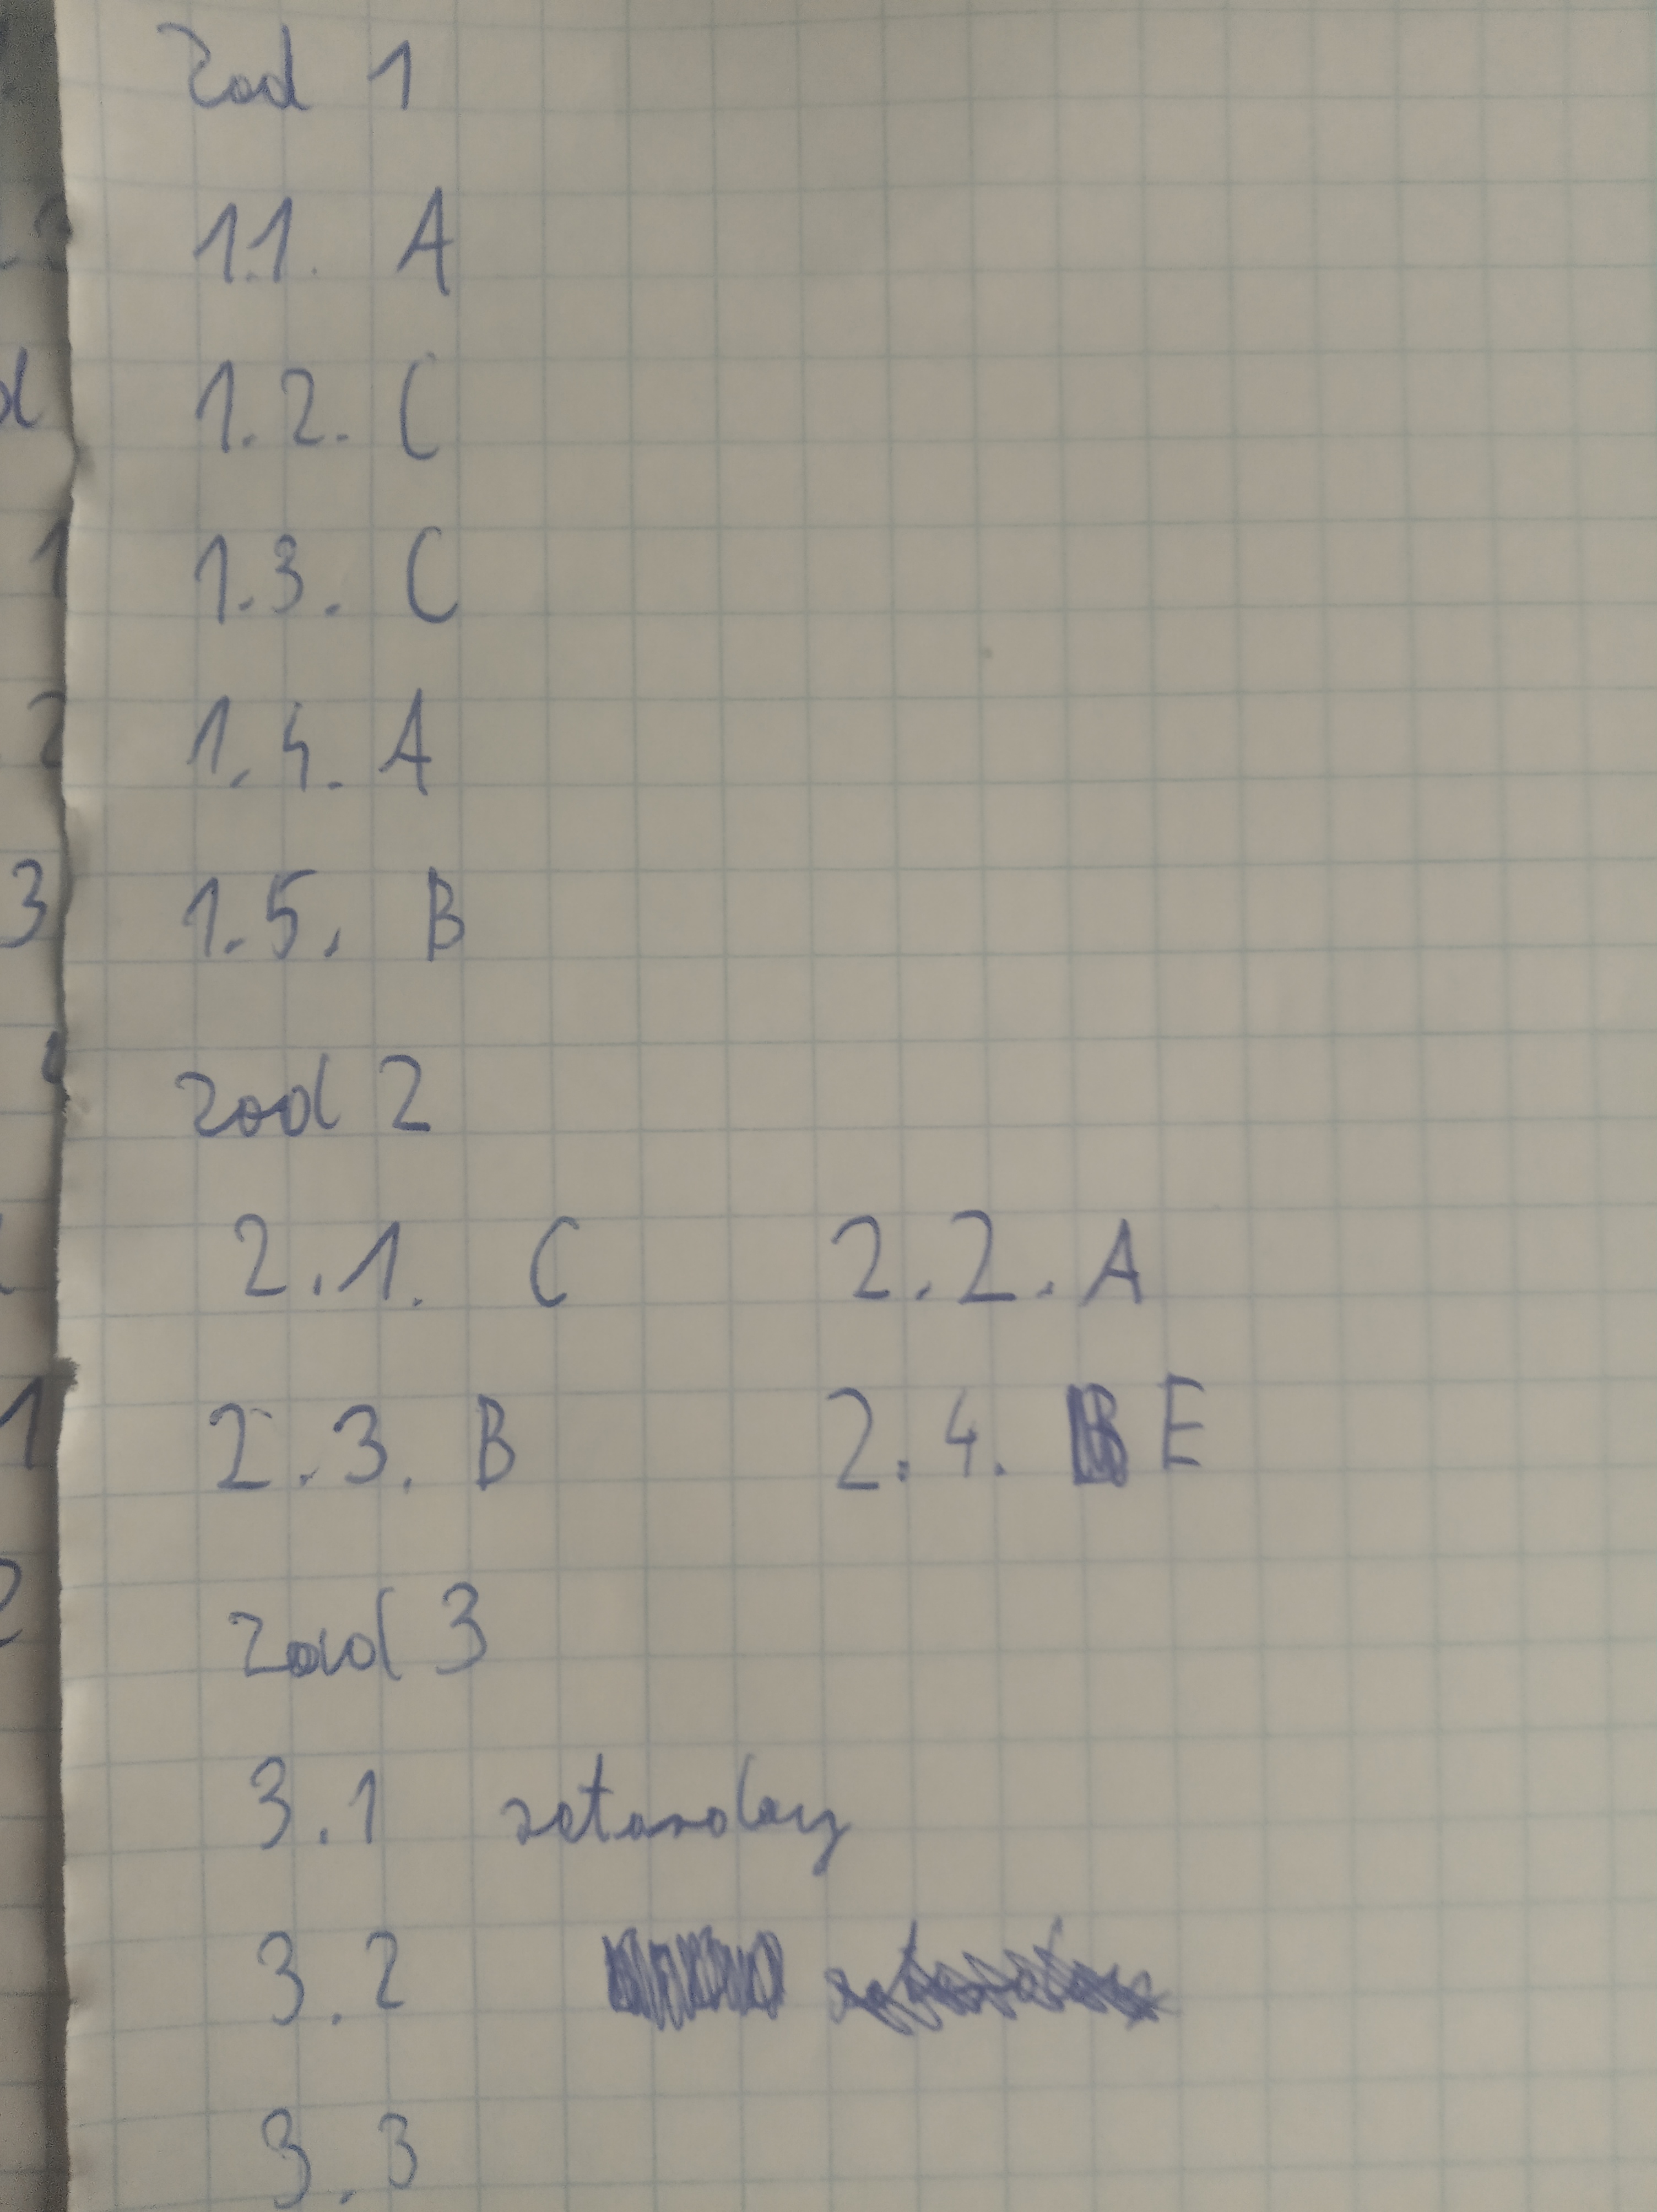 Zad 1
1.1. A
1.2. C
1.3. C
1.4. A
1.5. B
zad 2
2.1. C 2.2. A
2.3. B 2.4. E
zad 3
3.1
3.2
3.3